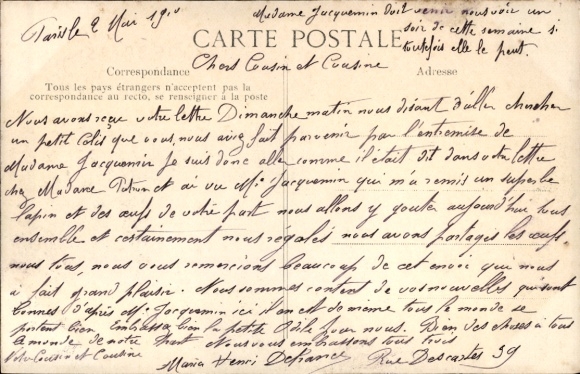 Paris le 2 Mai 19
Madame Jacquemin doit venir nous voir un
soir de cette semaine si
toutefois elle le peut.
CARTE POSTALE
Chers Cousin et Cousine
Correspondance
Adresse
Tous les pays étrangers n'acceptent pas la
correspondance au recto, se renseigner à la poste
Nous avons reçu votre lettre Dimanche matin nous disant d'aller chercher
un petit colis que vous nous aviez fait parvenir par l'entremise de
Madame Jacquemin Je suis donc allé comme il était dit dans votre lettre
chez Madame et ai vu Me Jacquemin qui m'a remis un superbe
lapin et des œufs de votre part nous allons y gouter aujourd'hui tous
ensemble et certainement nous régaler nous avons partagés les œufs
nous tous, nous vous remercions beaucoup de cet envoi que nous
a fait grand plaisir. Nous sommes content de vos nouvelles qui sont
bonnes d'après Me Jacquemin ici il en est de même tous le monde se
portent bien Embrassez bien la petite Odile pour nous. Bien des choses à tous
le monde de notre part Nous vous embrassons tous trois
Votre Cousin et Cousine
Maria Henri Defrance Rue Descartes 39